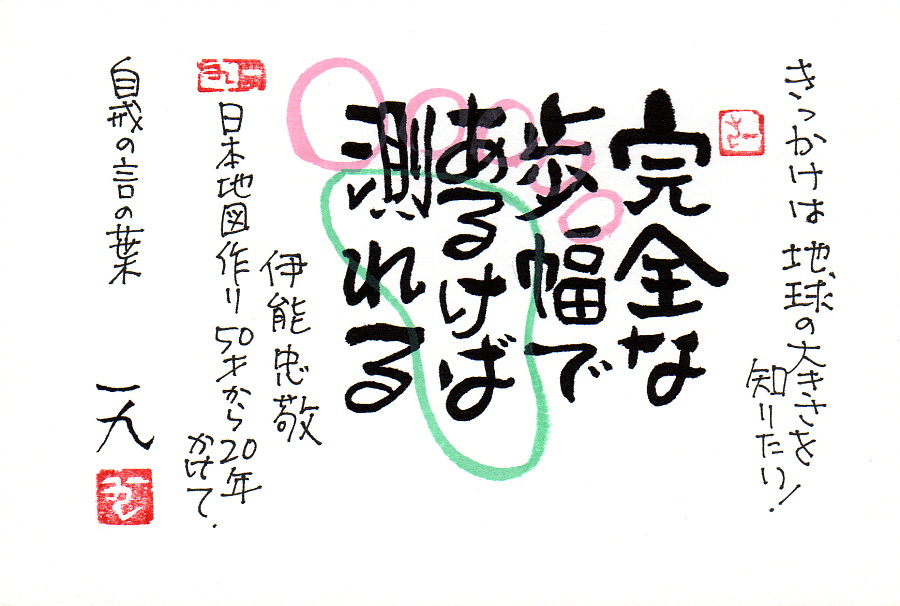 きっかけは 地球の大きさを
知りたい!
完全な
歩幅で
あるけば
測れる
伊能忠敬
日本地図作り50才から20年
かけて.
自戒の言の葉 一九